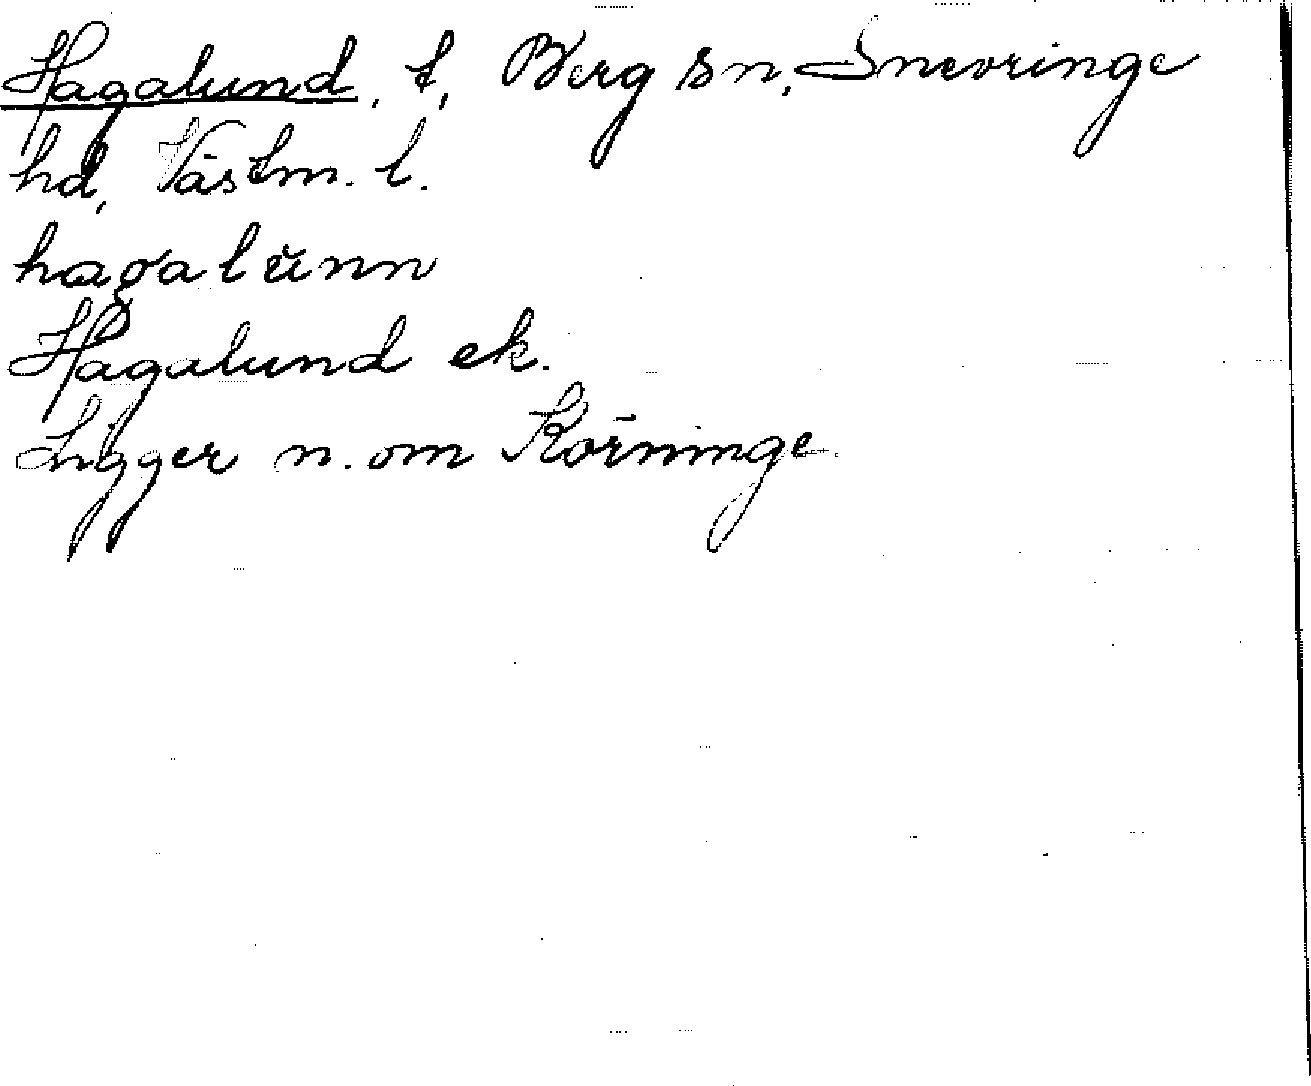 Hagalund, t, Berg sn, Snevringe
hd, Västm. l.
hagalŭnn
Hagalund ek.
Ligger n. om Körninge.